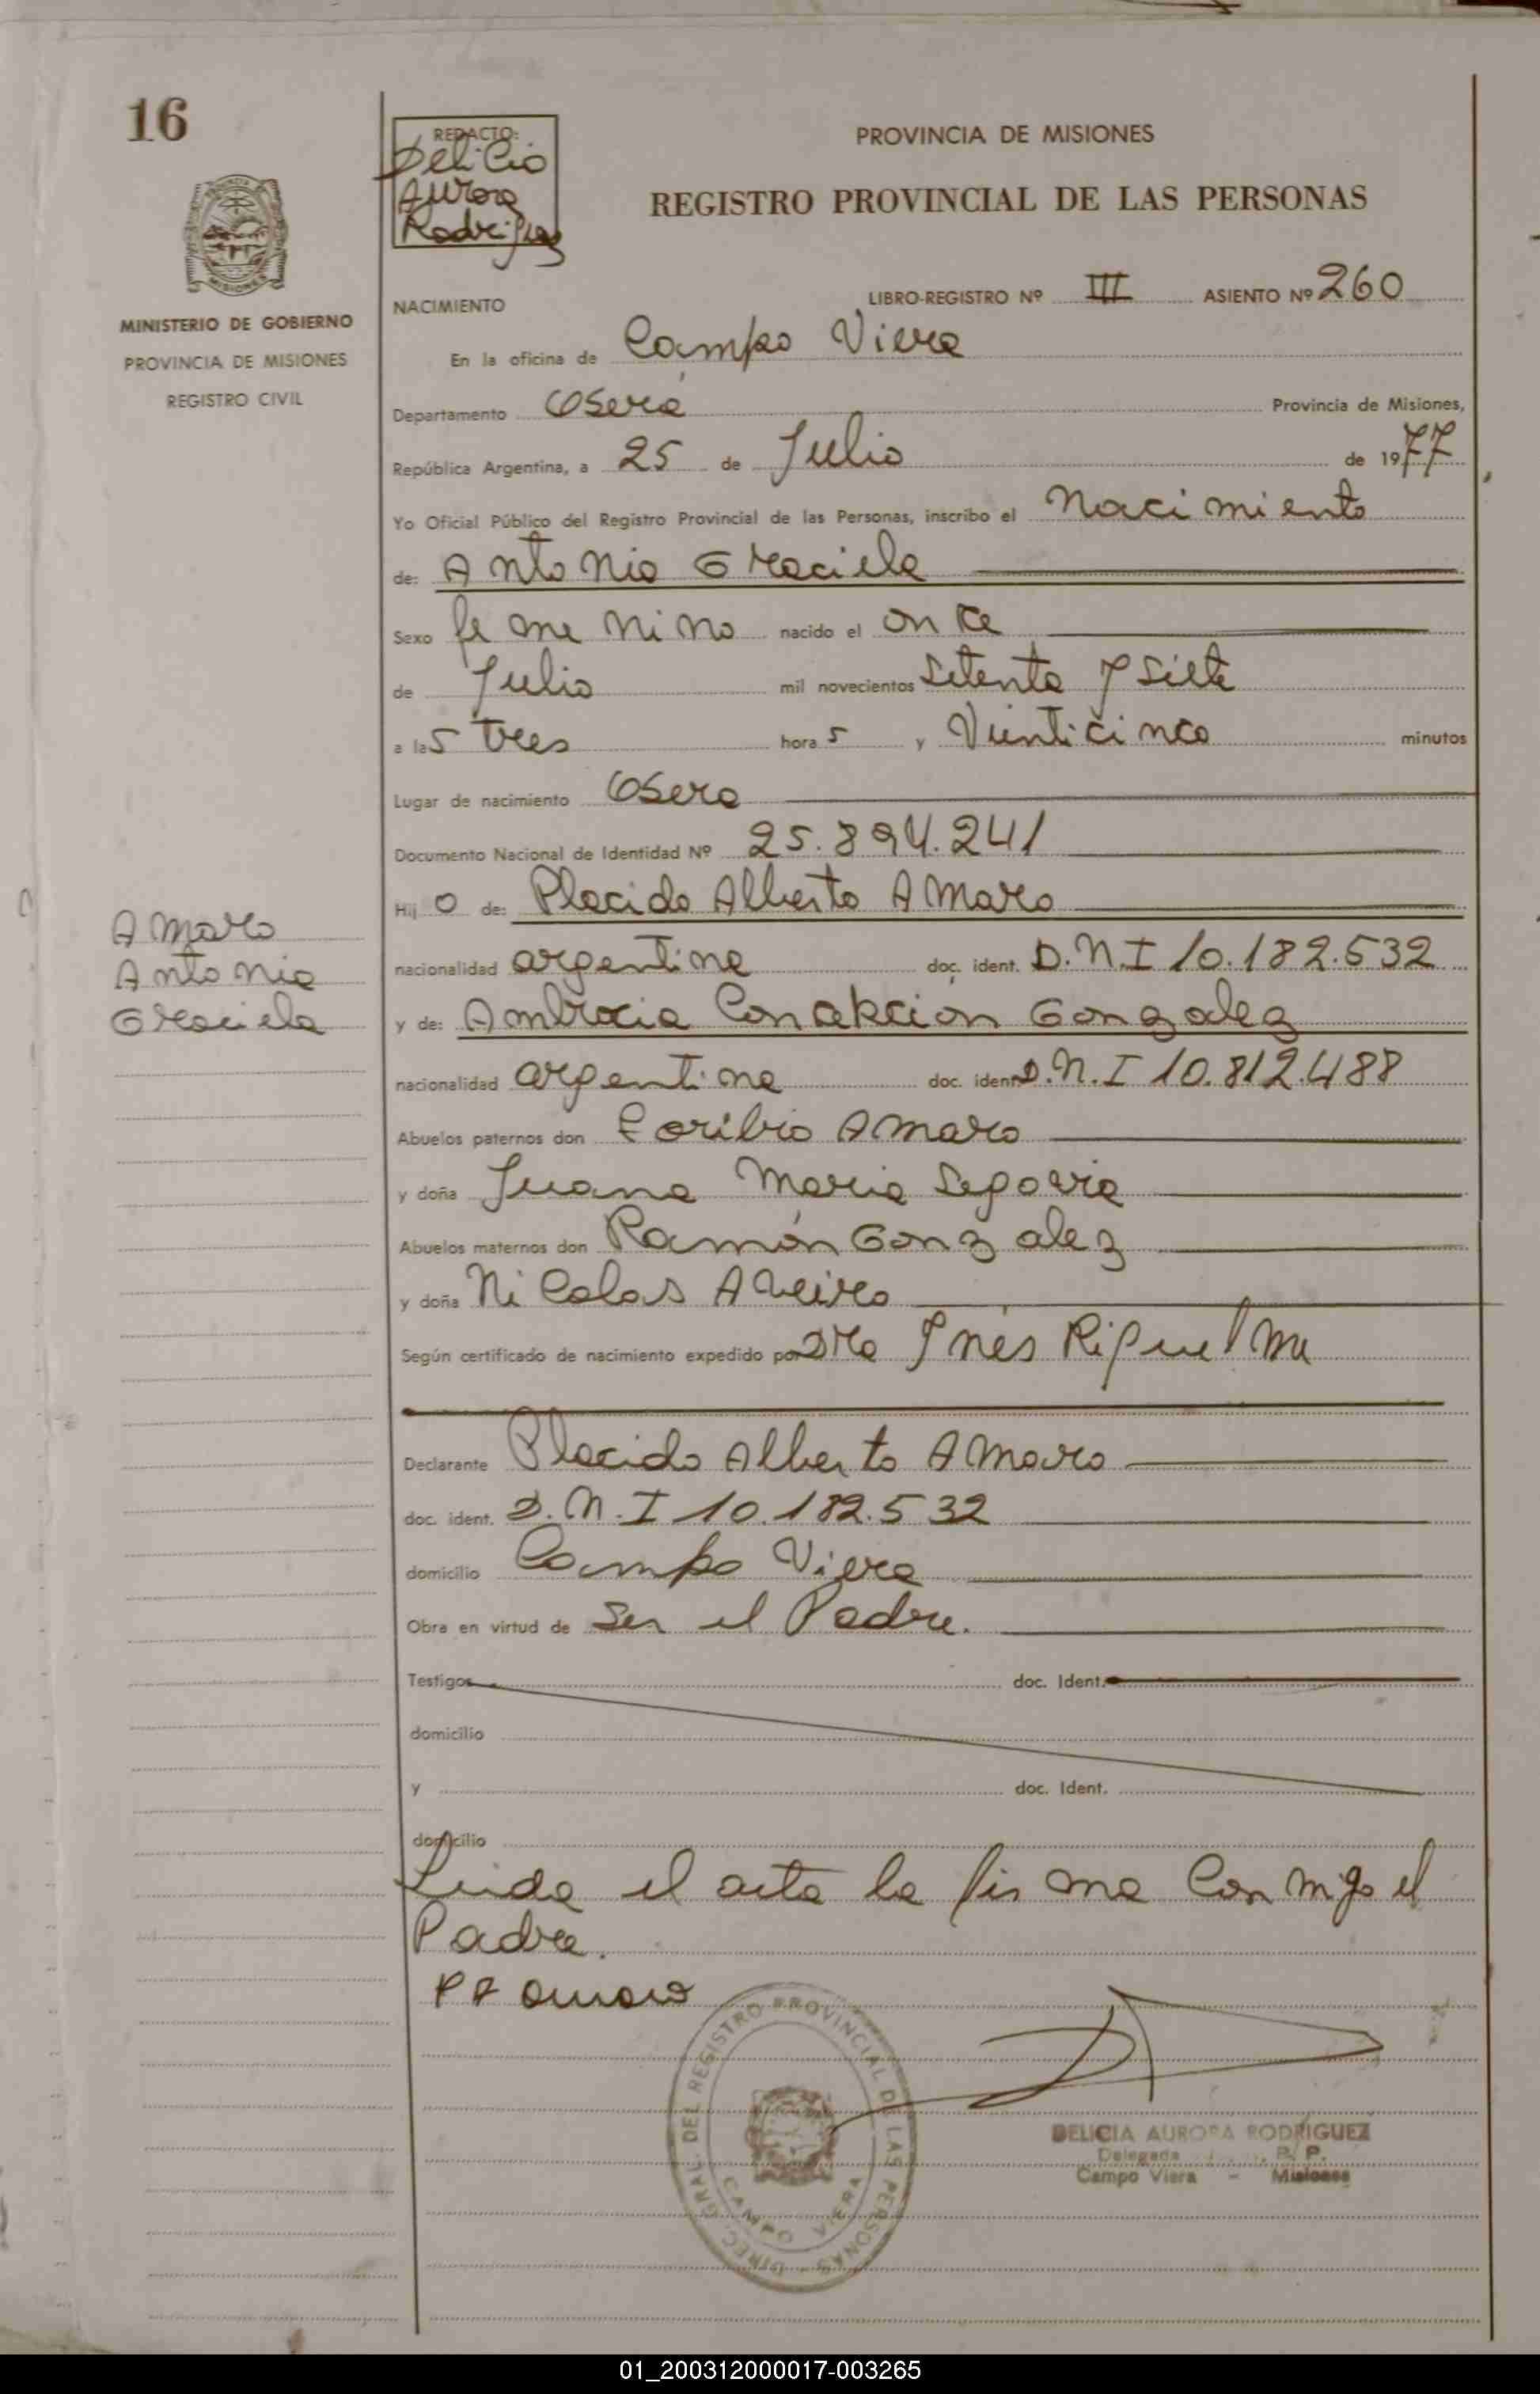 16
REDACTO:
Delicia
Aurora
Rodriguez
PROVINCIA DE MISIONES
REGISTRO PROVINCIAL DE LAS PERSONAS
MISIONES
MINISTERIO DE GOBIERNO
PROVINCIA DE MISIONES
REGISTRO CIVIL
LIBRO-REGISTRO Nº III ASIENTO Nº 260
NACIMIENTO
En la oficina de Campo Viera
Departamento Oberá Provincia de Misiones,
República Argentina, a 25 de Julio de 1977
Yo Oficial Público del Registro Provincial de las Personas, inscribo el Nacimiento
de: Antonia Graciela
Sexo femenino nacido el once
de Julio mil novecientos Setenta y Siete
a las tres hora s y Veinticinco minutos
Lugar de nacimiento Obera
Documento Nacional de Identidad Nº 25.894.241
Hij o de: Placido Alberto Amaro
nacionalidad argentina doc. ident. D.N.I 10.182.532
y de: Ambrocia Gonzalez
nacionalidad argentina doc. ident. D.N.I 10.812.488
Abuelos paternos don Toribio Amaro
y doña Juana Maria Segovia
Abuelos maternos don Ramón Gonzalez
y doña Nicolas Aveiro
Según certificado de nacimiento expedido por Dra Inés Riquelme
Amaro
Antonia
Graciela
Declarante Placido Alberto Amaro
doc. ident. D.N.I 10.182.532
domicilio Campo Viera
Obra en virtud de Ser el Padre.
Testigos doc. Ident.
domicilio
y doc. Ident.
domicilio
Leida el acta la firma Conmigo el
Padre.
P A Amaro
DIREC. GRAL. DEL REGISTRO PROVINCIAL DE LAS PERSONAS
CAMPO VIERA
DELICIA AURORA RODRIGUEZ
Delegada P. P.
Campo Viera - Misiones
01_200312000017-003265